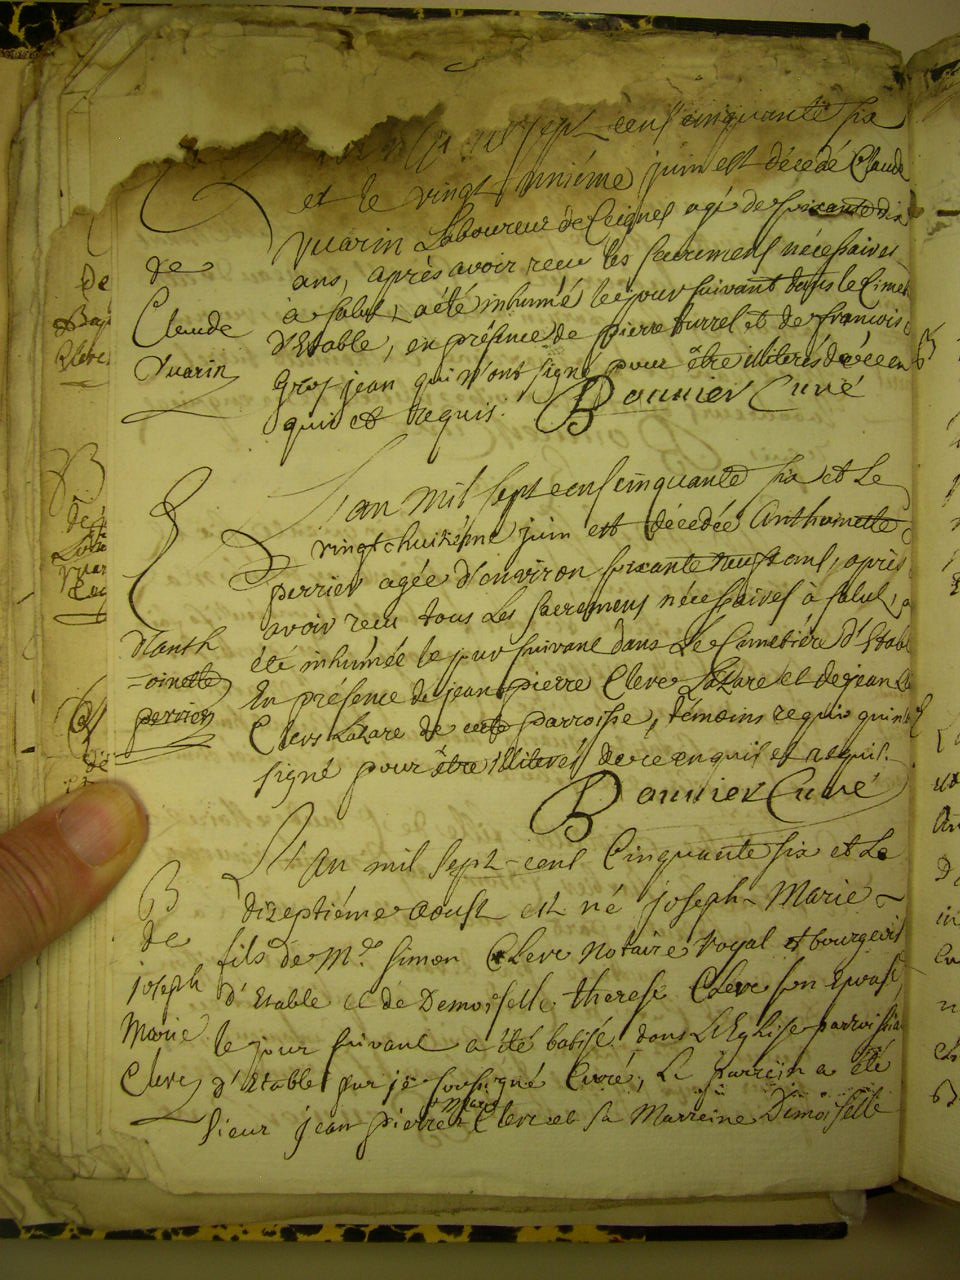 sept cens cinquante six
et le vingt unième juin est décedé Claude
Vuarin Laboureur de Ceignes agé de soixante dix
ans, après avoir recu les sacremens nécessaires
à salut, a été inhumé le jour suivant dans le Cimet
d'Etable, en présence de pierre turrel et de francois
Gros jean qui n'ont signé pour être illiterés de ce en
quis et requis. Bonnier Curé
S
de
Claude
Vuarin
L'an mil sept cens cinquante six et Le
vingt-huitième juin est décedée Anthoinette
perrier agée d'environ soixante neuf ans, après
avoir recu tous Les sacremens nécessaires à salut, a
été inhumée le jour suivant dans Le Cimetière d'Etabl
En présence de jean pierre Clerc Lazare et de jean
Clerc Lazare de cette parroisse, témoins requis qui n'
signé pour être illiterés de ce enquis et requis.
Bonnier Curé
S
d'Anth
-oinette
perrier
L'An mil sept-cens Cinquante six et Le
dizeptiéme Aoust est né joseph-Marie
fils de Me. Simon Clerc Notaire Royal et bourgeois
d'Etable et de Demoiselle therese Clerc son Epouse
le jour suivant a été batisé dans L'Eglise parroissia
d'Etable par je soussigné Curé, Le parrein a été
sieur jean pierre Marie Clerc et sa Marreine Demoiselle
B
de
joseph
Marie
Clerc